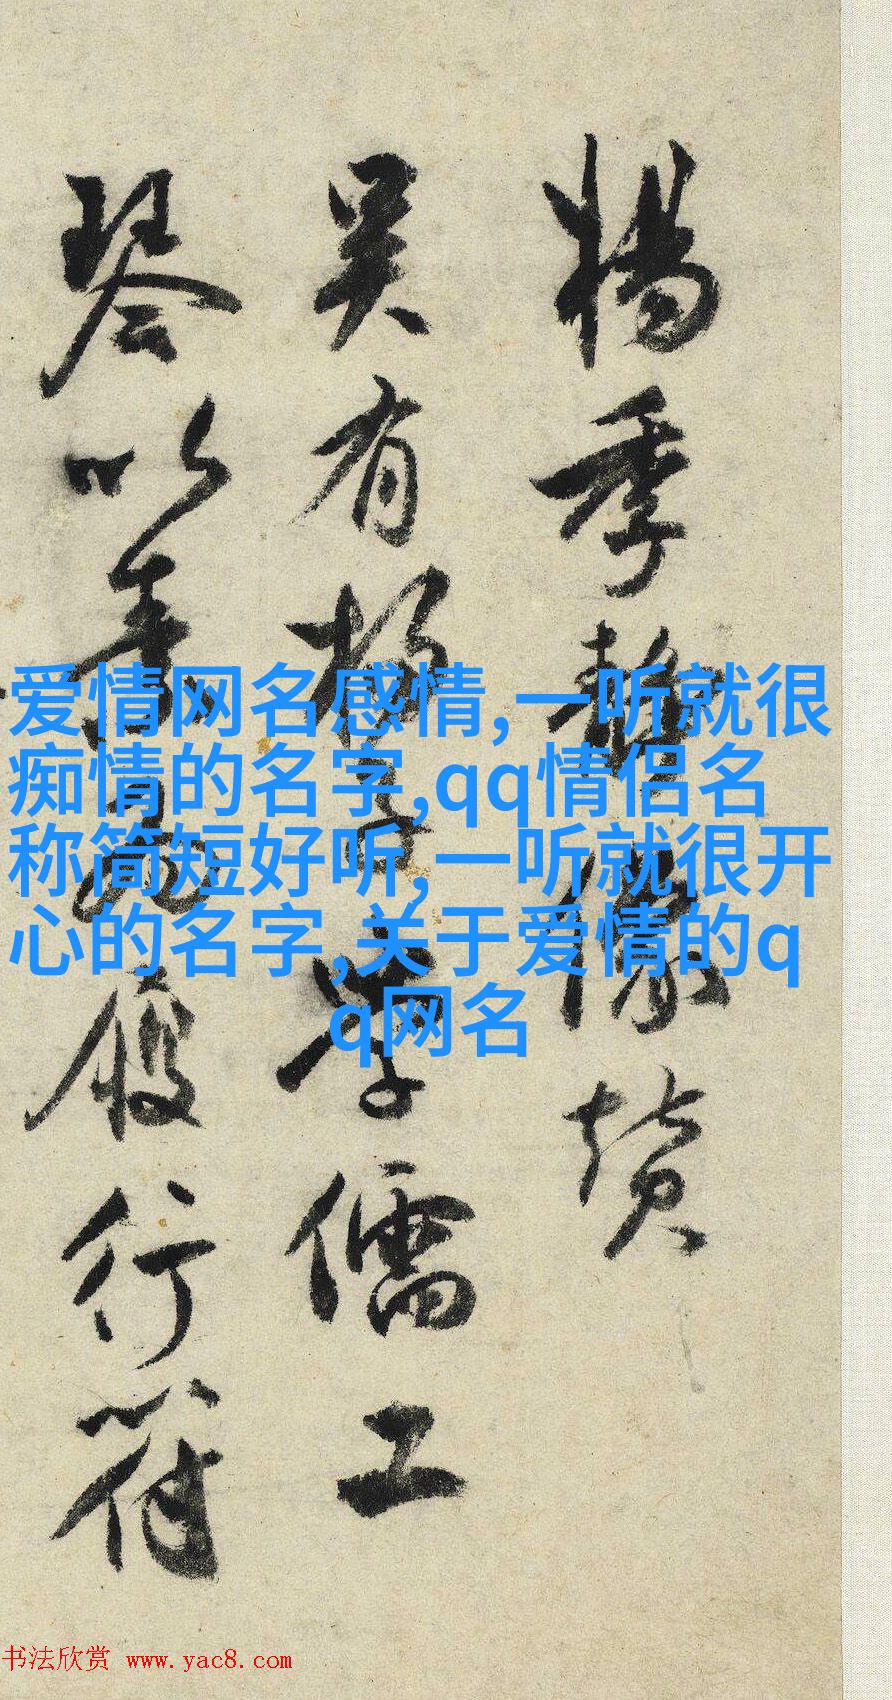 楊季静像赞
吴有杨子学儒工
琴以善是履行符
爱情网名感情,一听就很
痴情的名字,qq情侣名
称简短好听,一听就很开
心的名字,关于爱情的q
q网名
书法欣赏 www.yac8.com